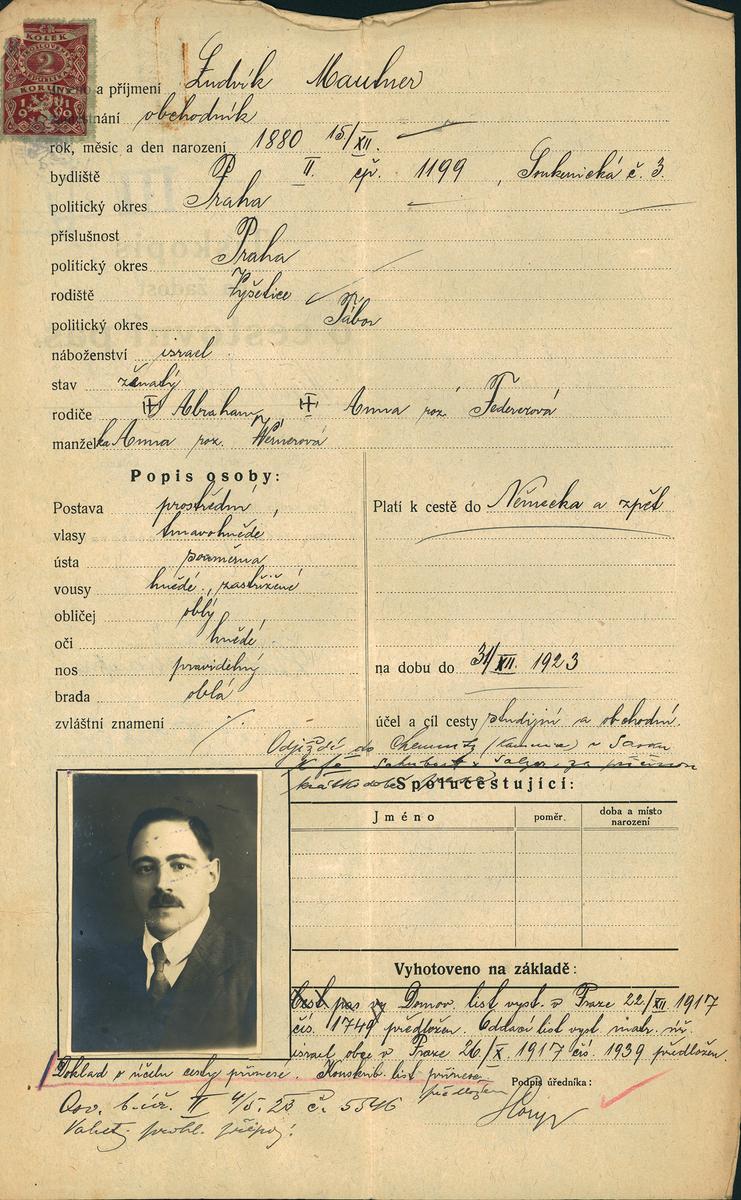 KOLEK
2
KORUNY
1919
jméno a příjmení Ludvík Mautner
zaměstnání obchodník
rok, měsíc a den narození 1880 15/XII.
bydliště Praha II. čp. 1199, Soukenická č. 3.
politický okres
příslušnost Praha
politický okres
rodiště Vyšetice
politický okres Tábor
náboženství israel
stav ženatý
rodiče Abraham, Anna roz. Federerová
manželka Anna roz. Wernerová
Popis osoby:
Postava prostřední,
vlasy tmavohnědé
ústa poměrna
vousy hnědé, zastřižené
obličej oblý
oči hnědé
nos pravidelný
brada oblá
zvláštní znamení ·/.
Platí k cestě do Německa a zpět
na dobu do 31/XII. 1923
účel a cíl cesty studijní a obchodní.
Odjíždí do Chemnitz (Kamenice) v Sasku
k fě Schubert & Salzer za
Spolucestující:
Jméno poměr. doba a místo narození
Vyhotoveno na základě:
Cest. pas vy Domov. list vyst. v Praze 22/XII 1917
čís. 11749 předložen. Oddací list vyst. matr. úř.
israel. obce v Praze 26/X. 1917 čís. 1939 předložen.
Doklad o účelu cesty přinese. Konskrib. list přinese
předložen
Podpis úředníka:
II 4/5. 23 č. 5546